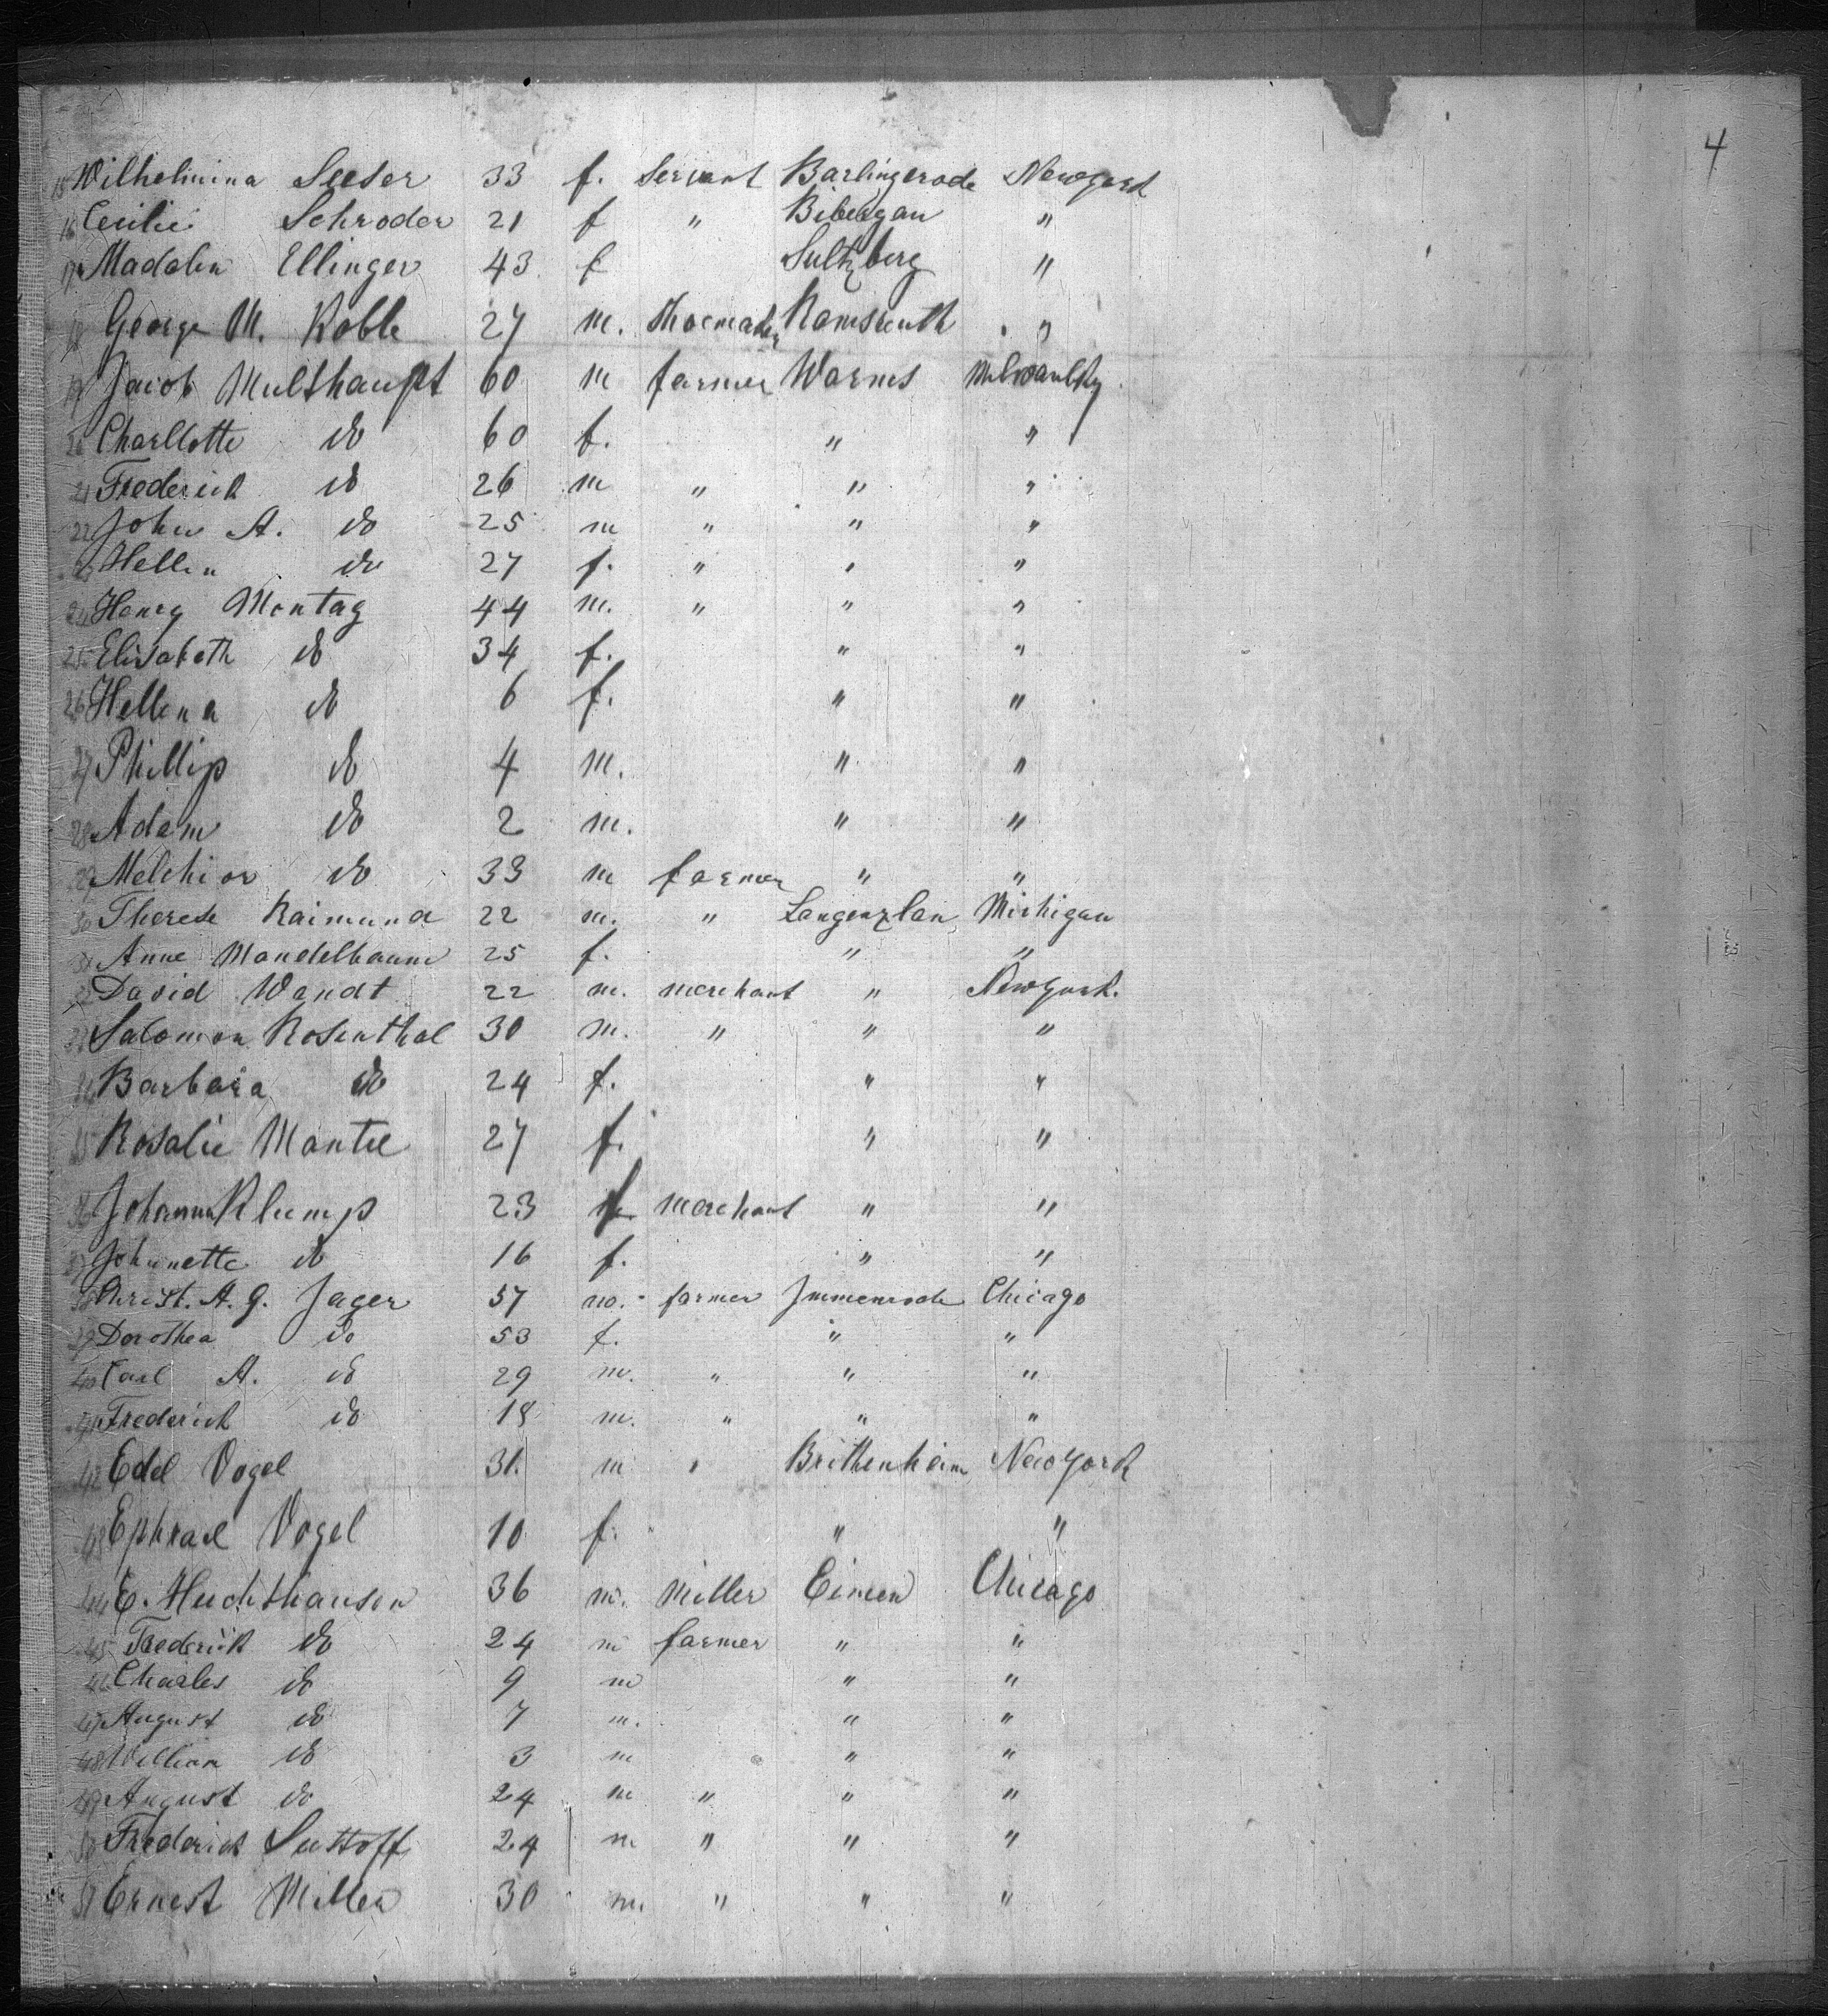 4
15 Wilhelmina Seeser 33 f. Servant Barlingerode Newyork
16 Cecilie Schroder 21 f " Bibergau "
17 Madalen Ellinger 43 f Sultzberg "
18 George M. Roble 27 m. Shoemaker Ramsreuth "
19 Jacob Multhaupt 60 m farmer Worms Milwaulky
20 Charllotte do 60 f. " "
21 Frederick do 26 m " " "
22 John A. do 25 m " " "
23 Hellen do 27 f. " " "
24 Henry Montag 44 m. " " "
25 Elisabeth do 34 f. " "
26 Hellena do 6 f. " "
27 Phillip do 4 m. " "
28 Adam do 2 m. " "
29 Melchior do 33 m farmer " "
30 Therese Raimund 22 m. " Langenzlan Michigan
31 Anne Mandelbaum 25 f. " "
32 David Wandt 22 m. merchant " Newyork.
33 Salomon Rosenthal 30 m. " " "
34 Barbara do 24 f. " "
35 Rosalie Mantel 27 f. " "
36 Johanna Klump 23 f merchant " "
37 Johannette do 16 f. " "
38 Christ. A. G. Jager 57 m. farmer Immenrode Chicago
39 Dorothea do 53 f. " "
40 Carl A. do 29 m. " " "
41 Frederick do 18 m. " " "
42 Edel Vogel 31. m " Brittenheim New York
43 Ephrael Vogel 10 f. " "
44 E. Huchthausen 36 m. Miller Eimen Chicago
45 Frederick do 24 m farmer " "
46 Charles do 9 m " "
47 August do 7 m. " "
48 William do 3 m " "
49 August do 24 m " " "
50 Frederick Suttoff 24 m " " "
51 Ernest Miller 30 m. " " "